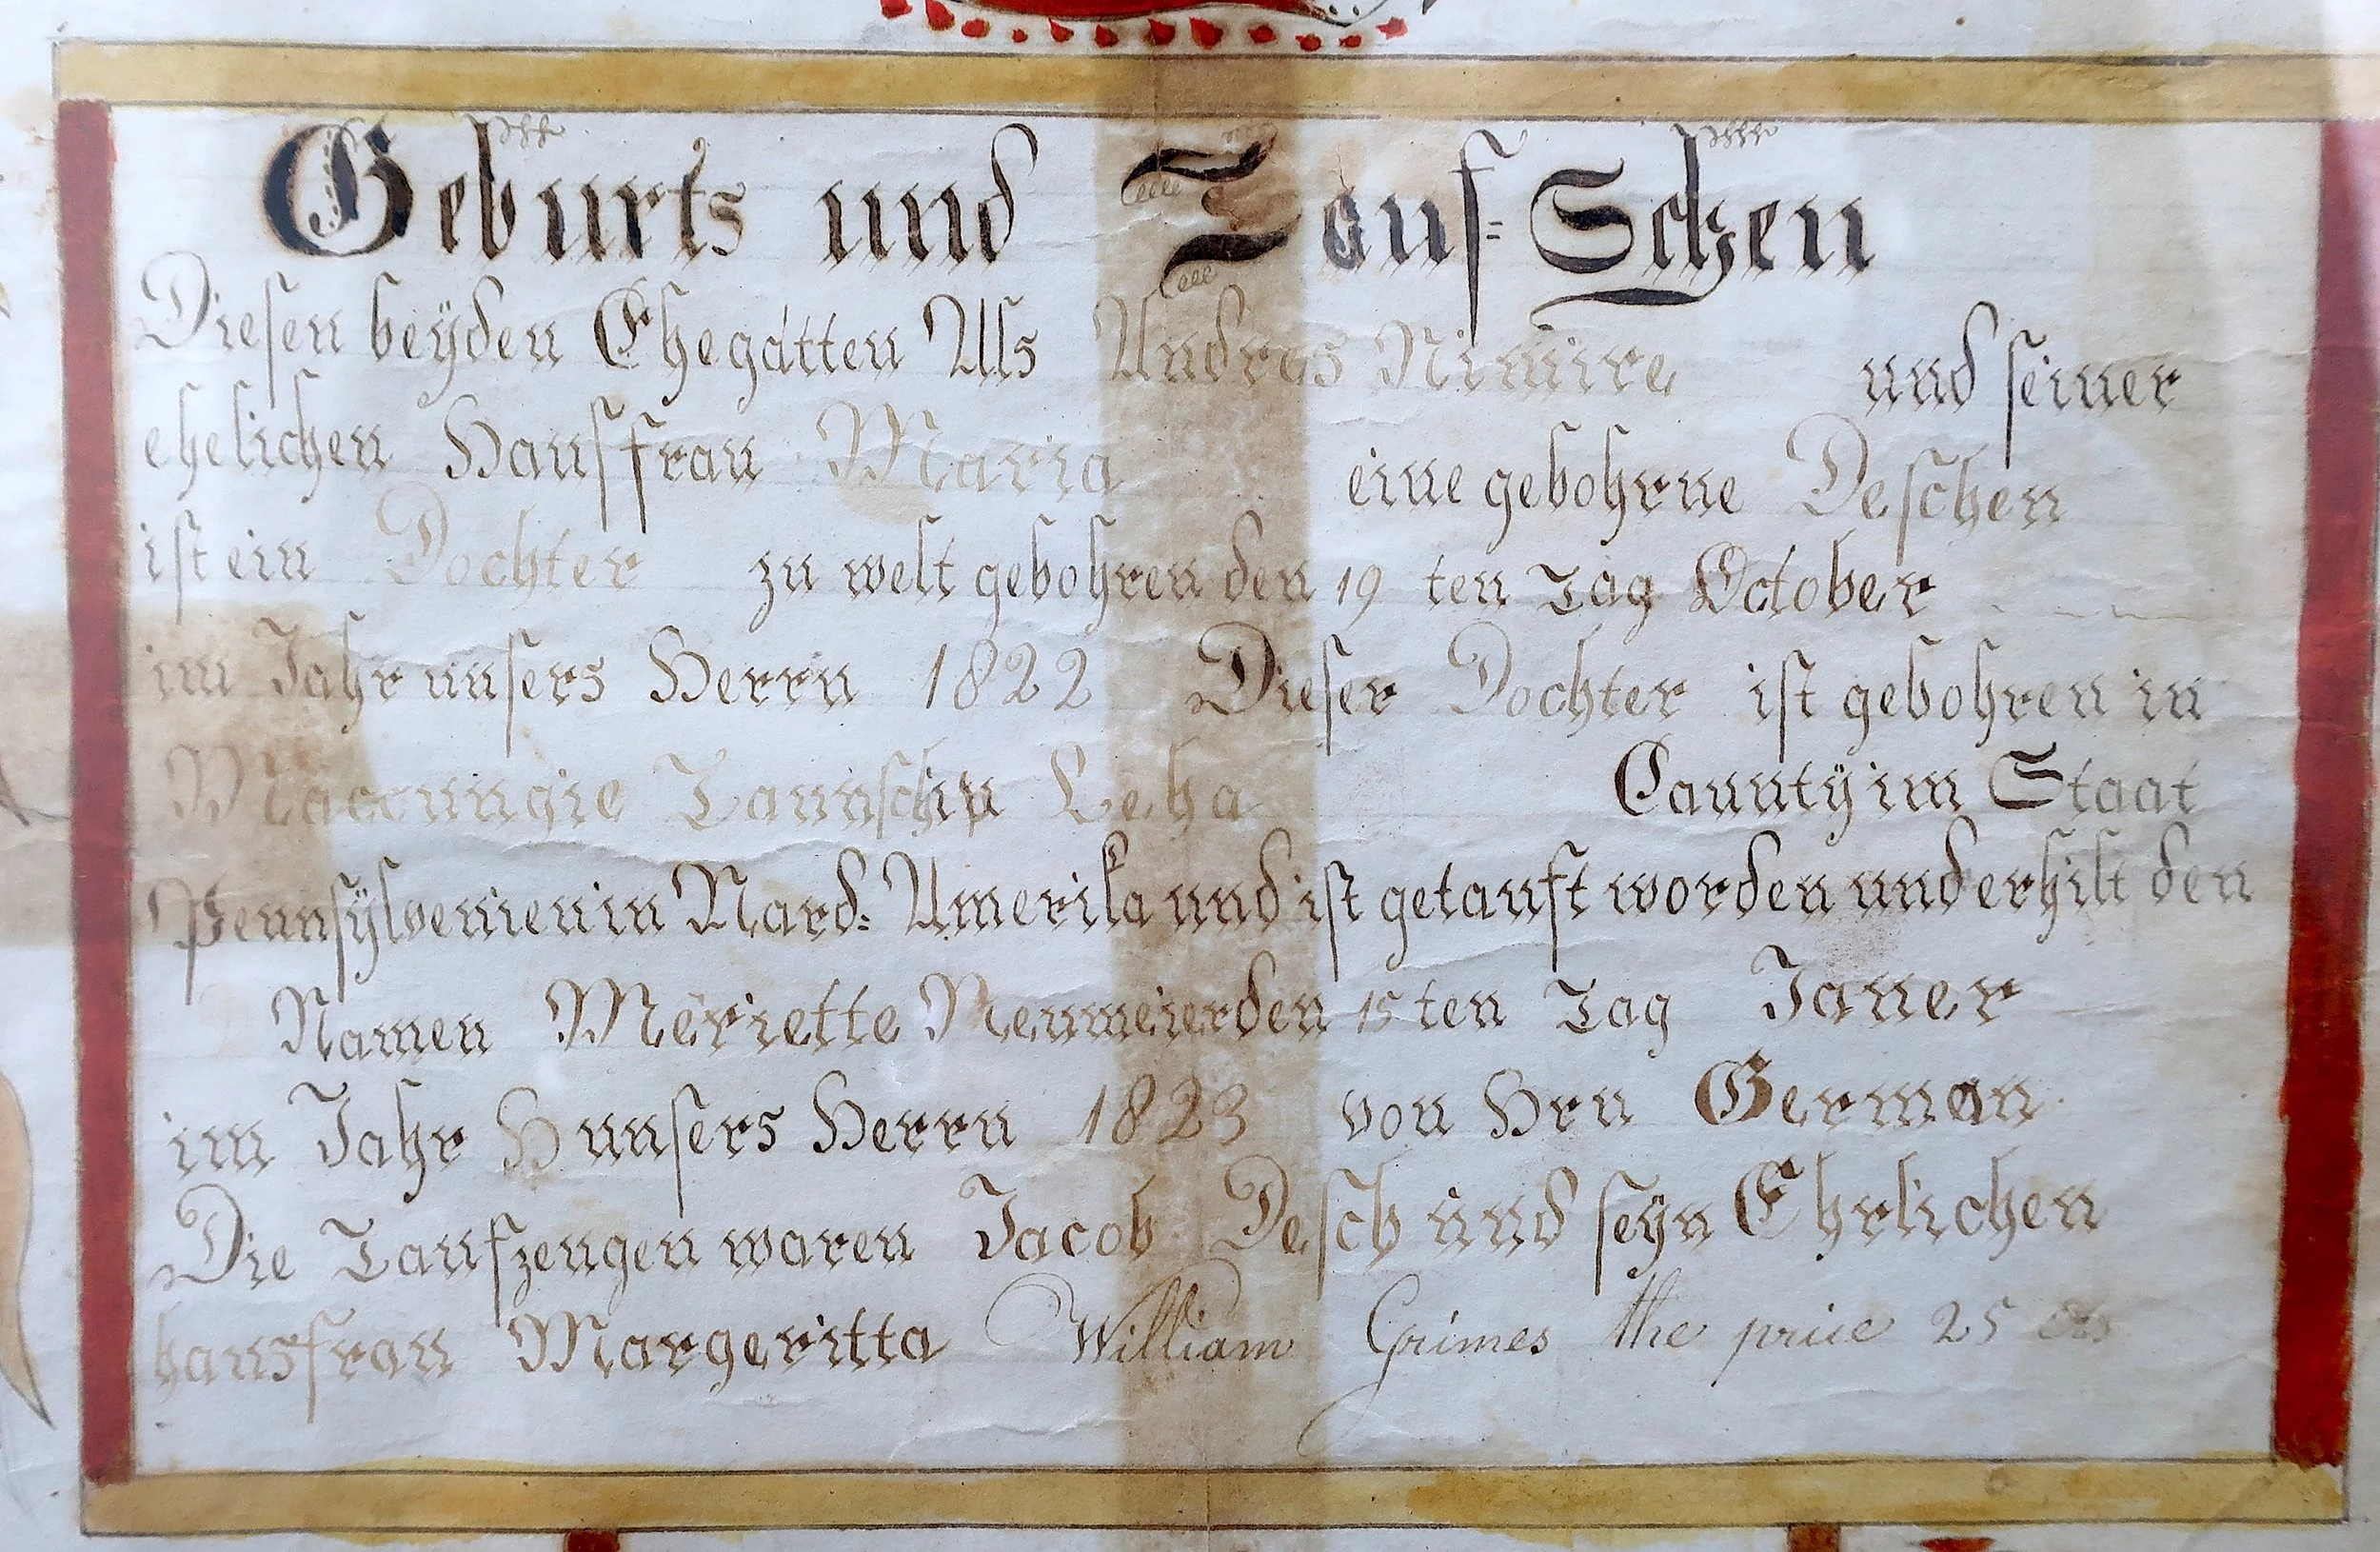 Geburts und Tauf=Schen
Diesen beyden Ehegatten Als Andreas Nimire und seiner
ehelichen Hausfrau Maria eine gebohrne Deschen
ist ein Dochter zu welt gebohren den 19 ten Tag October
im Jahr unsers Herrn 1822 Dieser Dochter ist gebohren in
Maccungie Taunschip Leha Caunty im Staat
Pennsylvenien in Nard= Amerika und ist getauft worden und erhilt den
Namen Meriette Neumeier den 15 ten Tag Janer
im Jahr H unsers Herrn 1823 von Hrn German
Die Taufzeugen waren Jacob Desch und seyn Ehrlichen
hausfrau Margeritta William Grimes the price 25